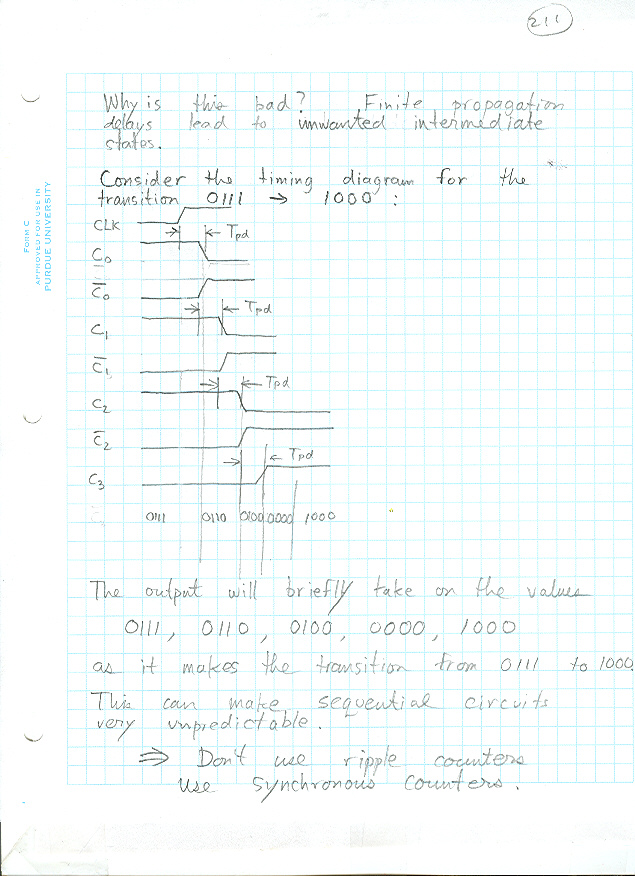 211
Why is this bad? Finite propagation
delays lead to unwanted intermediate
states.
Consider the timing diagram for the
transition 0111 → 1000 :
FORM C
APPROVED FOR USE IN
PURDUE UNIVERSITY
CLK
Tpd
C0
C̅0
Tpd
C1
C̅1
Tpd
C2
C̅2
Tpd
C3
0111 0110 0100 0000 1000
The output will briefly take on the values
0111, 0110, 0100, 0000, 1000
as it makes the transition from 0111 to 1000.
This can make sequential circuits
very unpredictable.
⇒ Don't use ripple counters
Use synchronous counters.